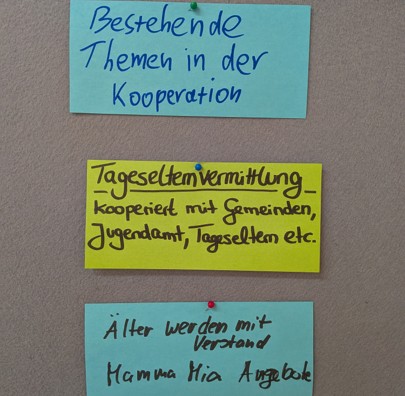 Bestehende
Themen in der
Kooperation
Tageselternvermittlung
kooperiert mit Gemeinden,
Jugendamt, Tageseltern etc.
Älter werden mit
Verstand
Mamma Mia Angebote